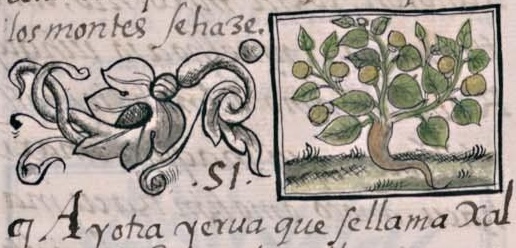 los montes se haze.
.SI.
¶ Ay otra yerua que se llama Xal